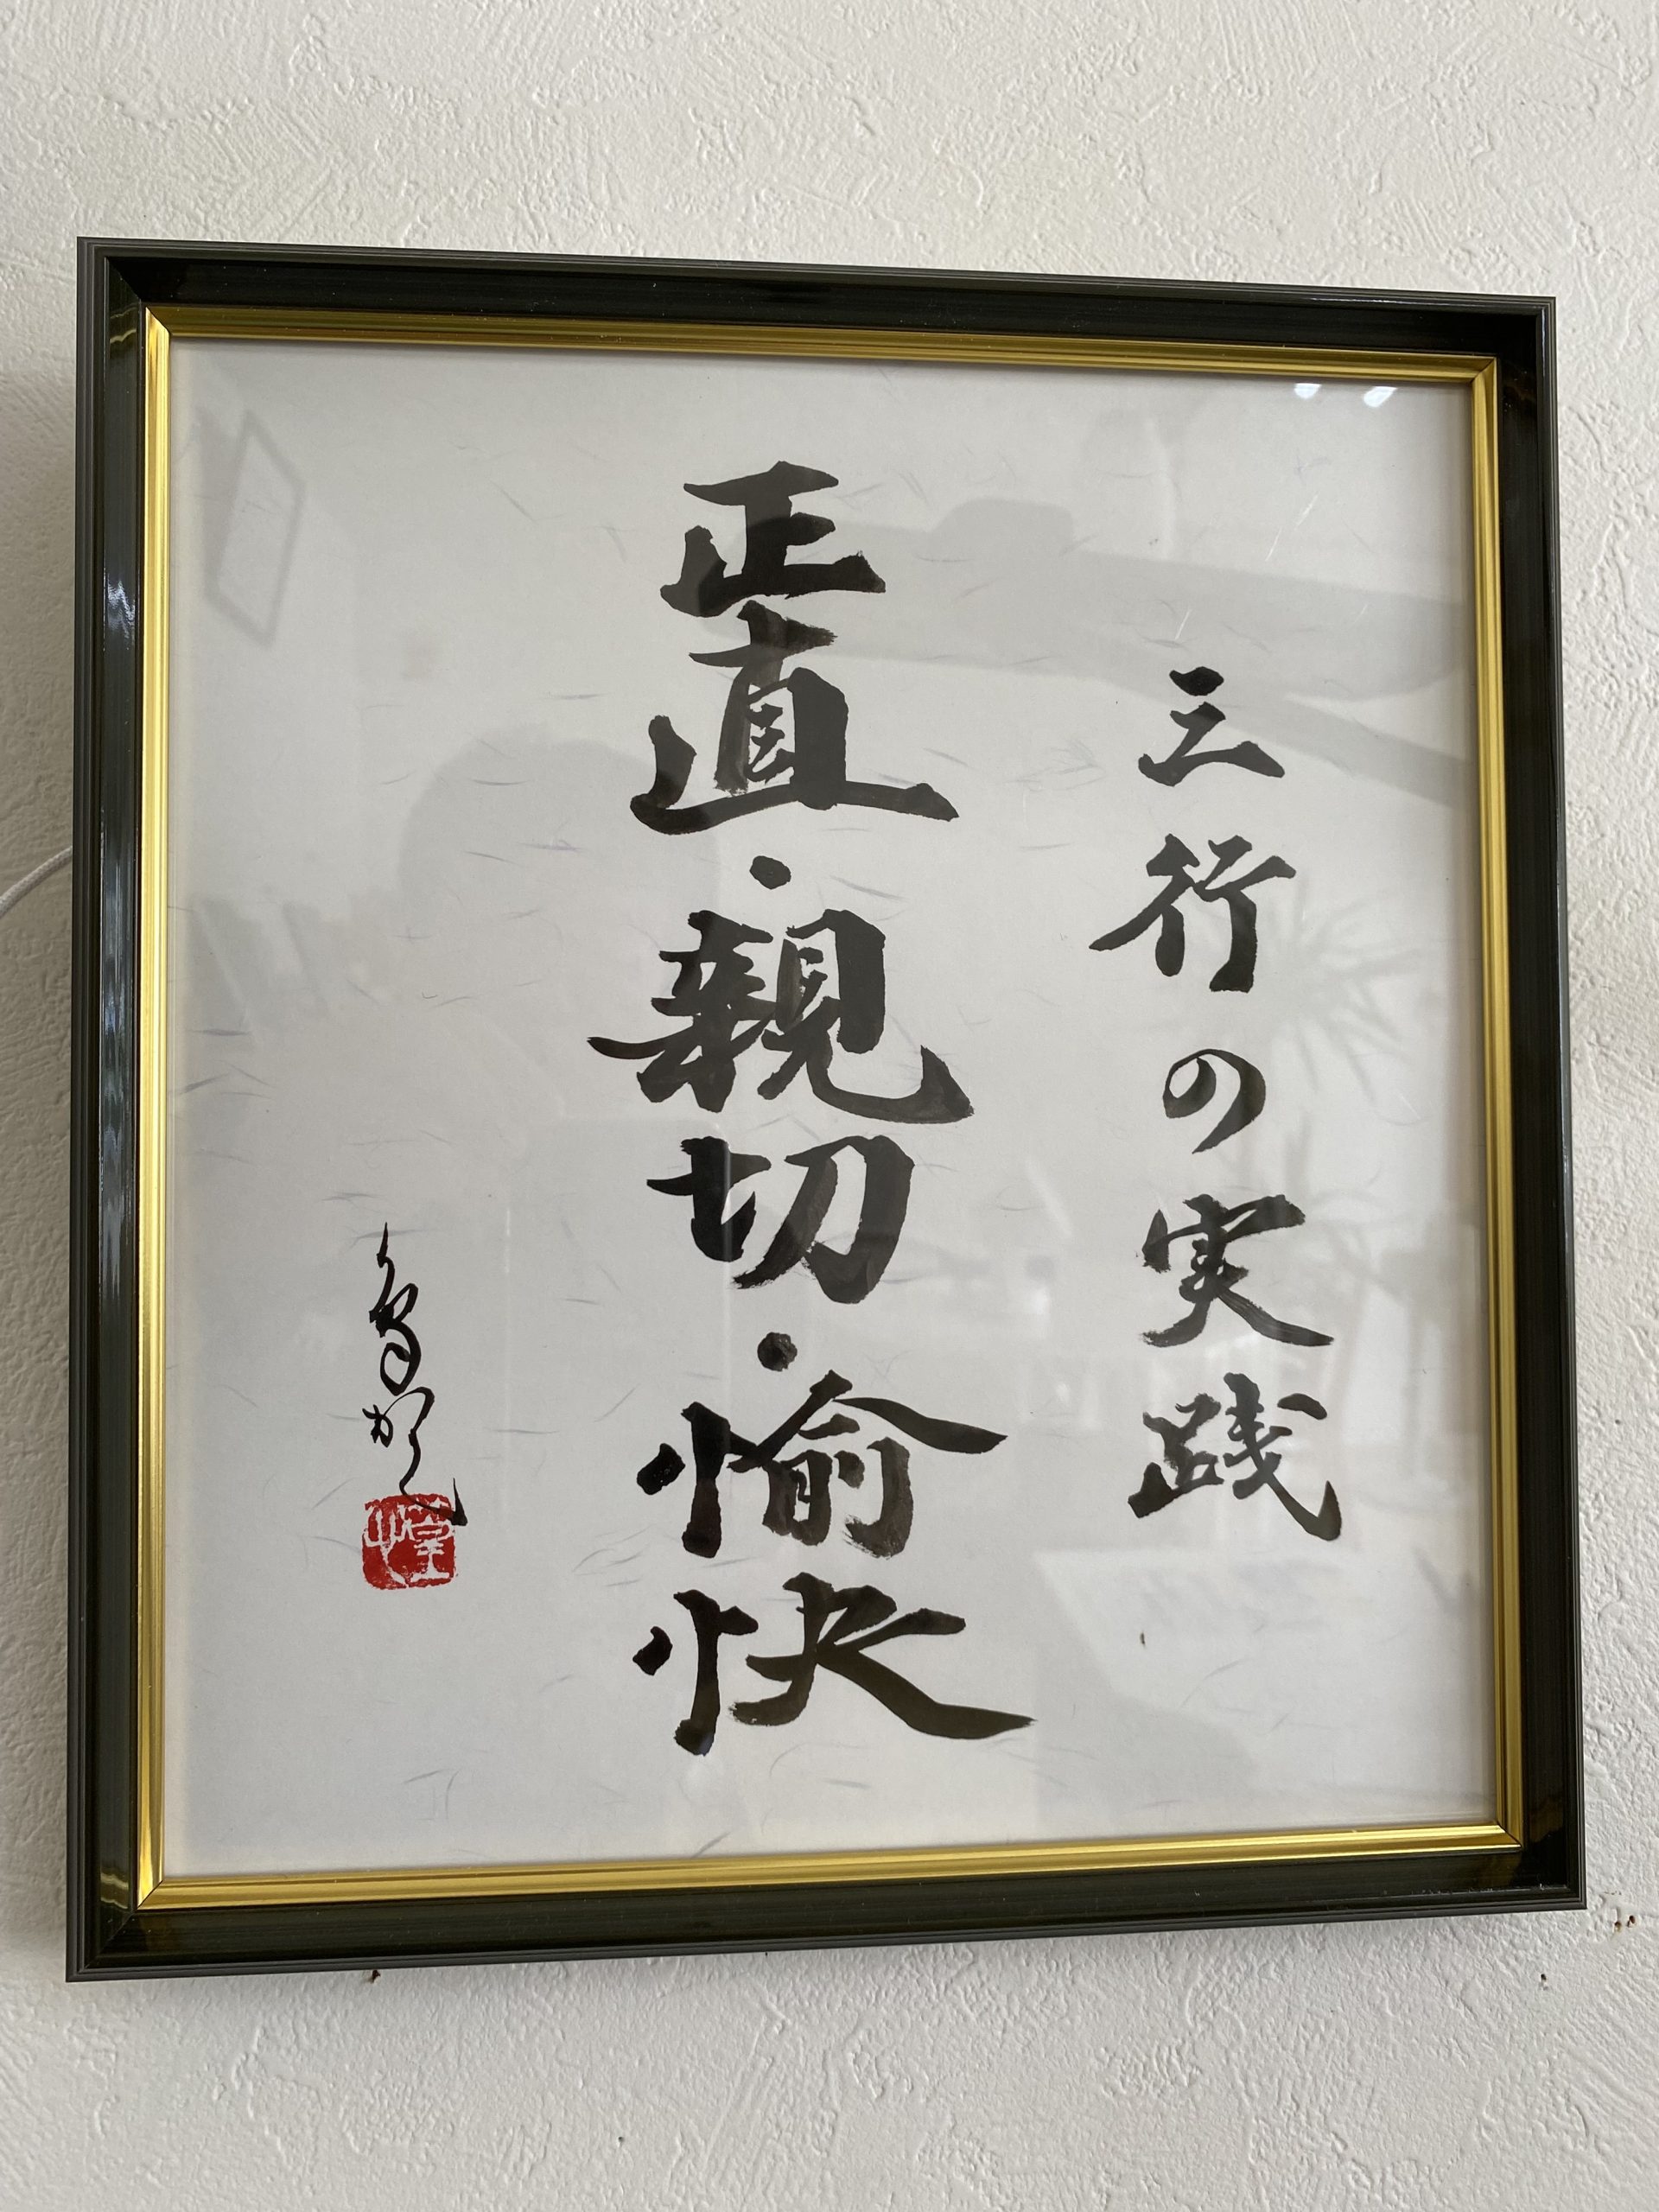 三行の実践
正直・親切・愉快